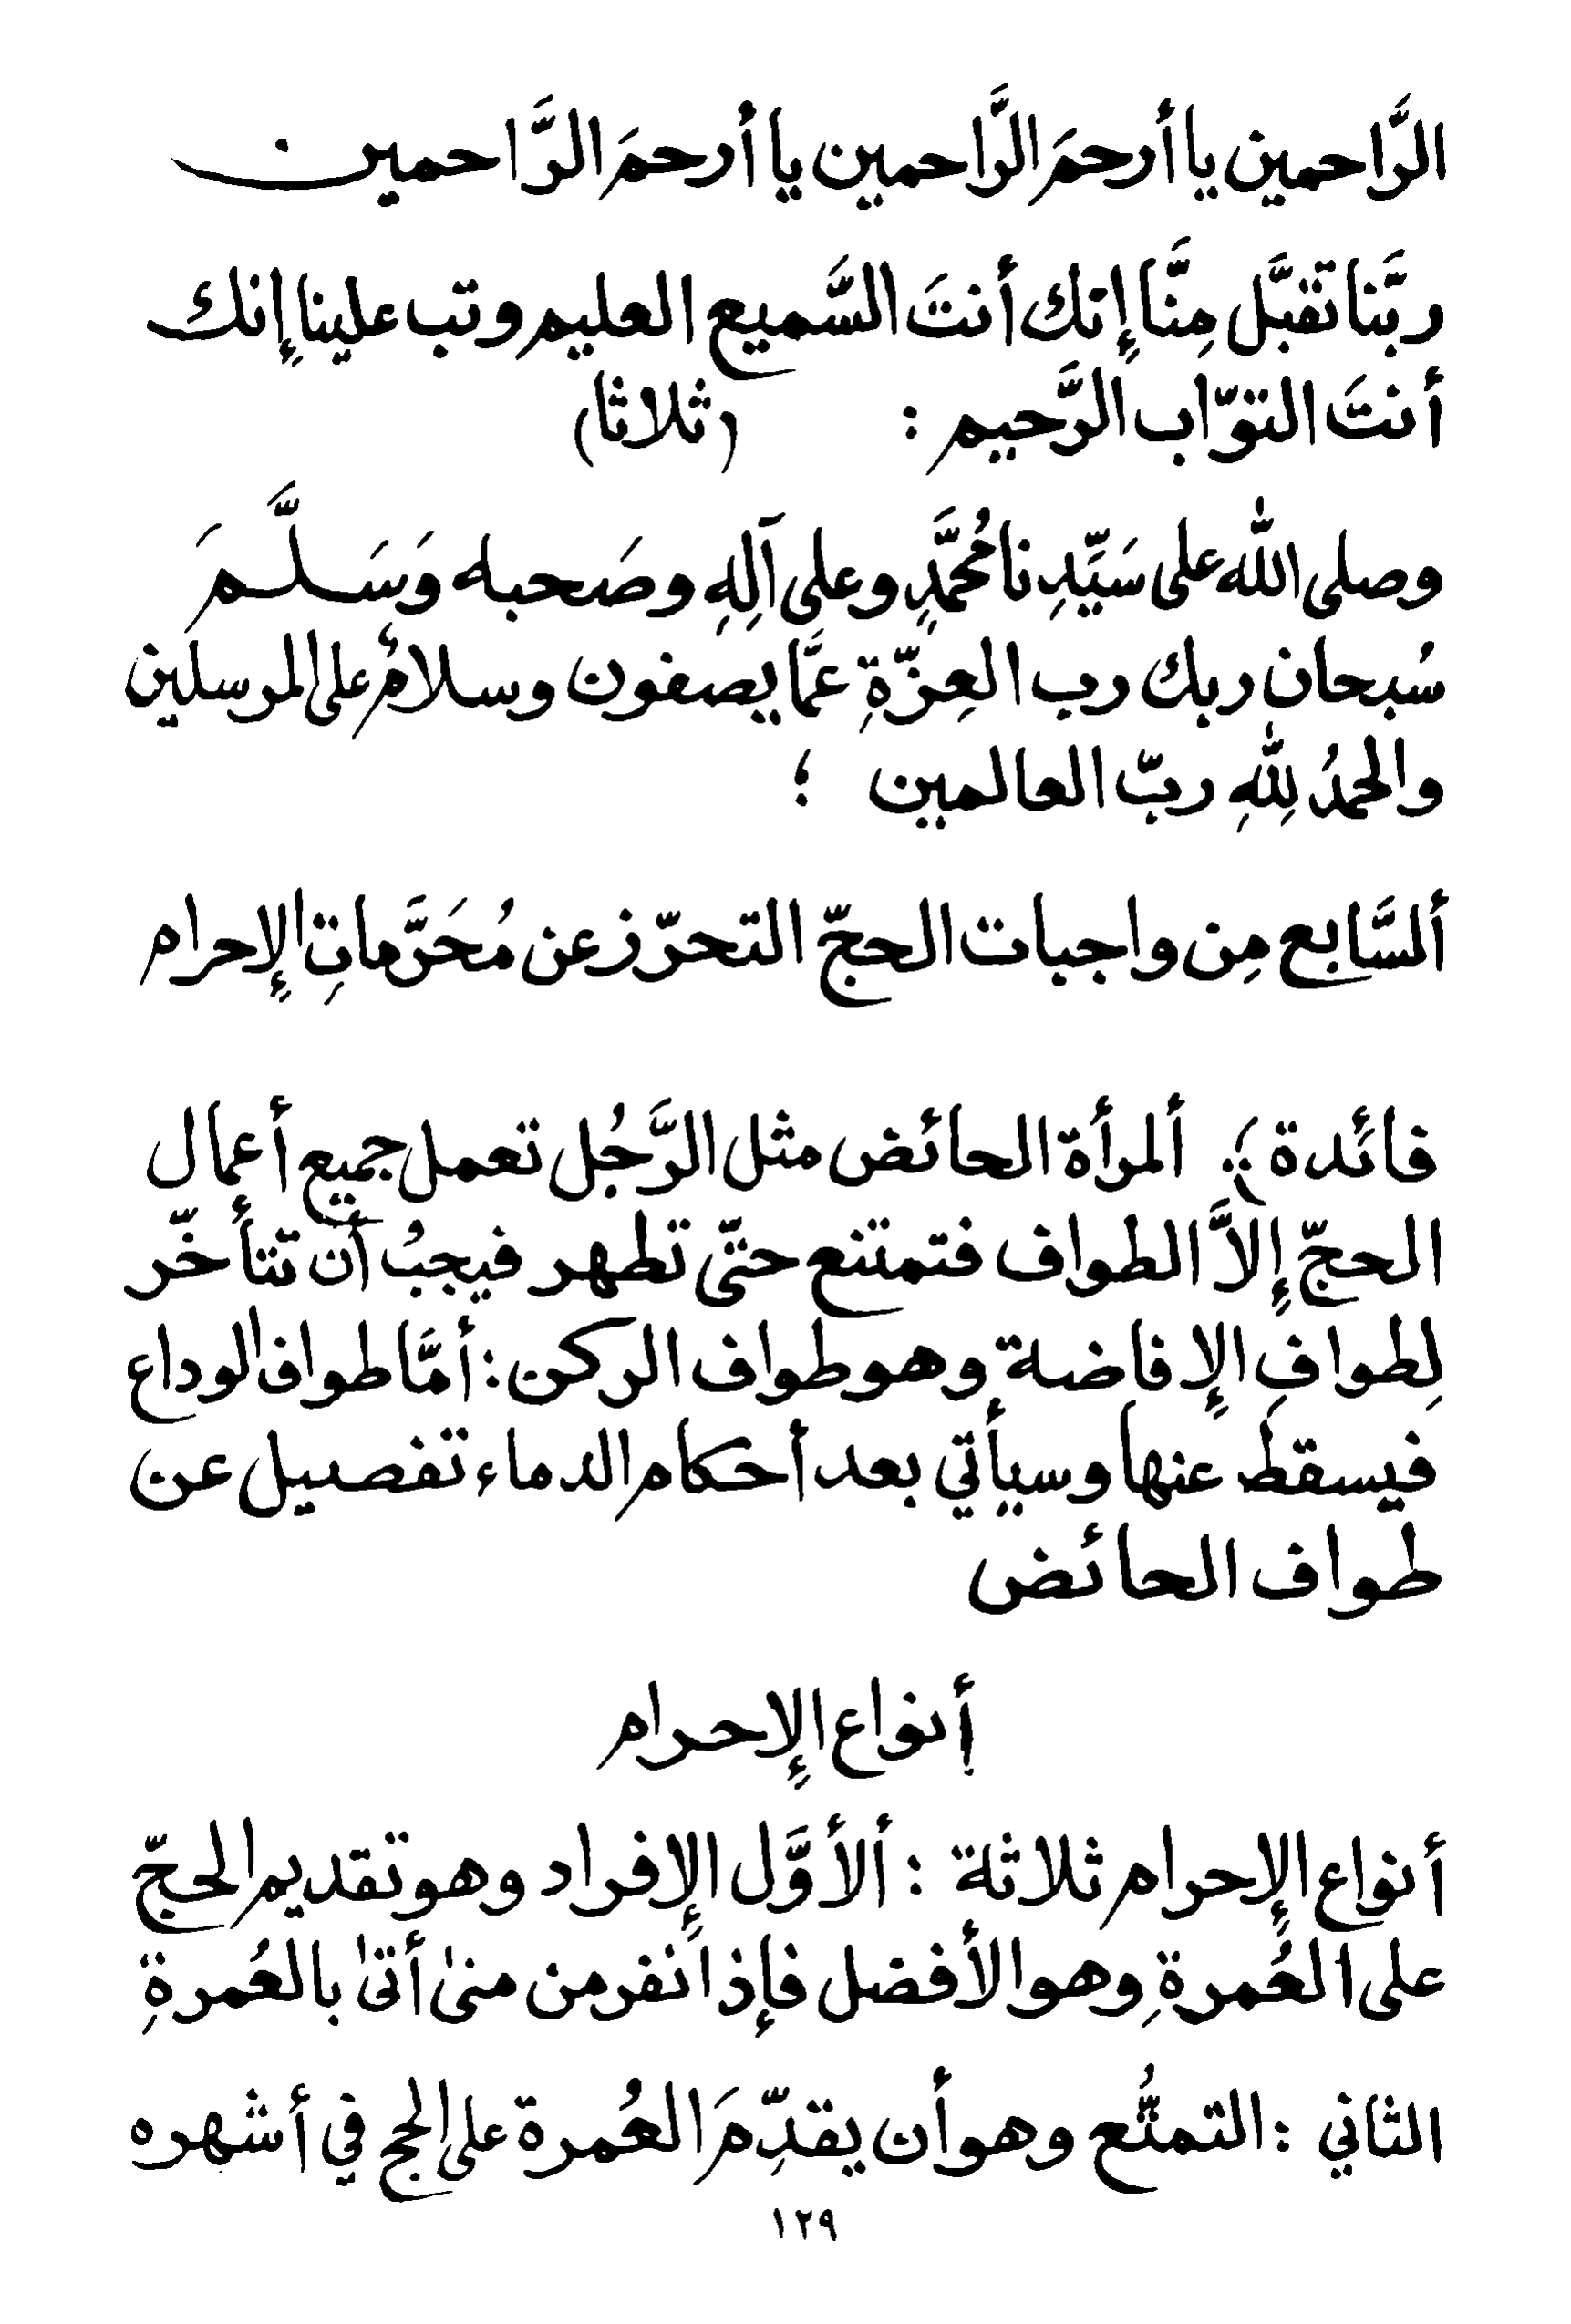 الرَّاحمين يا أرحمَ الرَّاحمين يا أرحمَ الرَّاحمين
ربَّنا تقبَّل مِنَّا إنك أنتَ السَّميع العليم وتب علينا إنك
أنتَ التوّاب الرَّحيم : (ثلاثا)
وصلى الله على سَيِّدِنا مُحمَّدٍ وعلى آلِهِ وصَحبه وَسَلَّمَ
سُبحان ربك رب العِزّةِ عمَّا يصفون وسلامٌ على المرسلين
والحمدُ لِلّهِ ربّ العالمين ؛
ألسَّابع مِن واجبات الحجّ التحرّز عن مُحَرَّماتِ الإحرام
فائدة ﴾: ألمرأة الحائض مثل الرَّجُل تعمل جميع أعمال
الحجّ إلاَّ الطواف فتمتنع حتّى تطهر فيجبُ أن تتأخّر
لِطوافِ الإفاضة وهو طواف الركن : أمَّا طواف الوداع
فيسقطُ عنها وسيأتي بعد أحكام الدماء تفصيل عن
طواف الحائض
أنواع الإحرام
أنواع الإحرام ثلاثة : ألأوَّل الإفراد وهو تقديم الحجّ
على العُمرةِ وهو الأفضل فإذا نفر من منىٰ أتىٰ بالعُمرةِ
الثاني : التمتُّع وهو أن يقدِّمَ العُمرة على الحج في أشهره
١٢٩